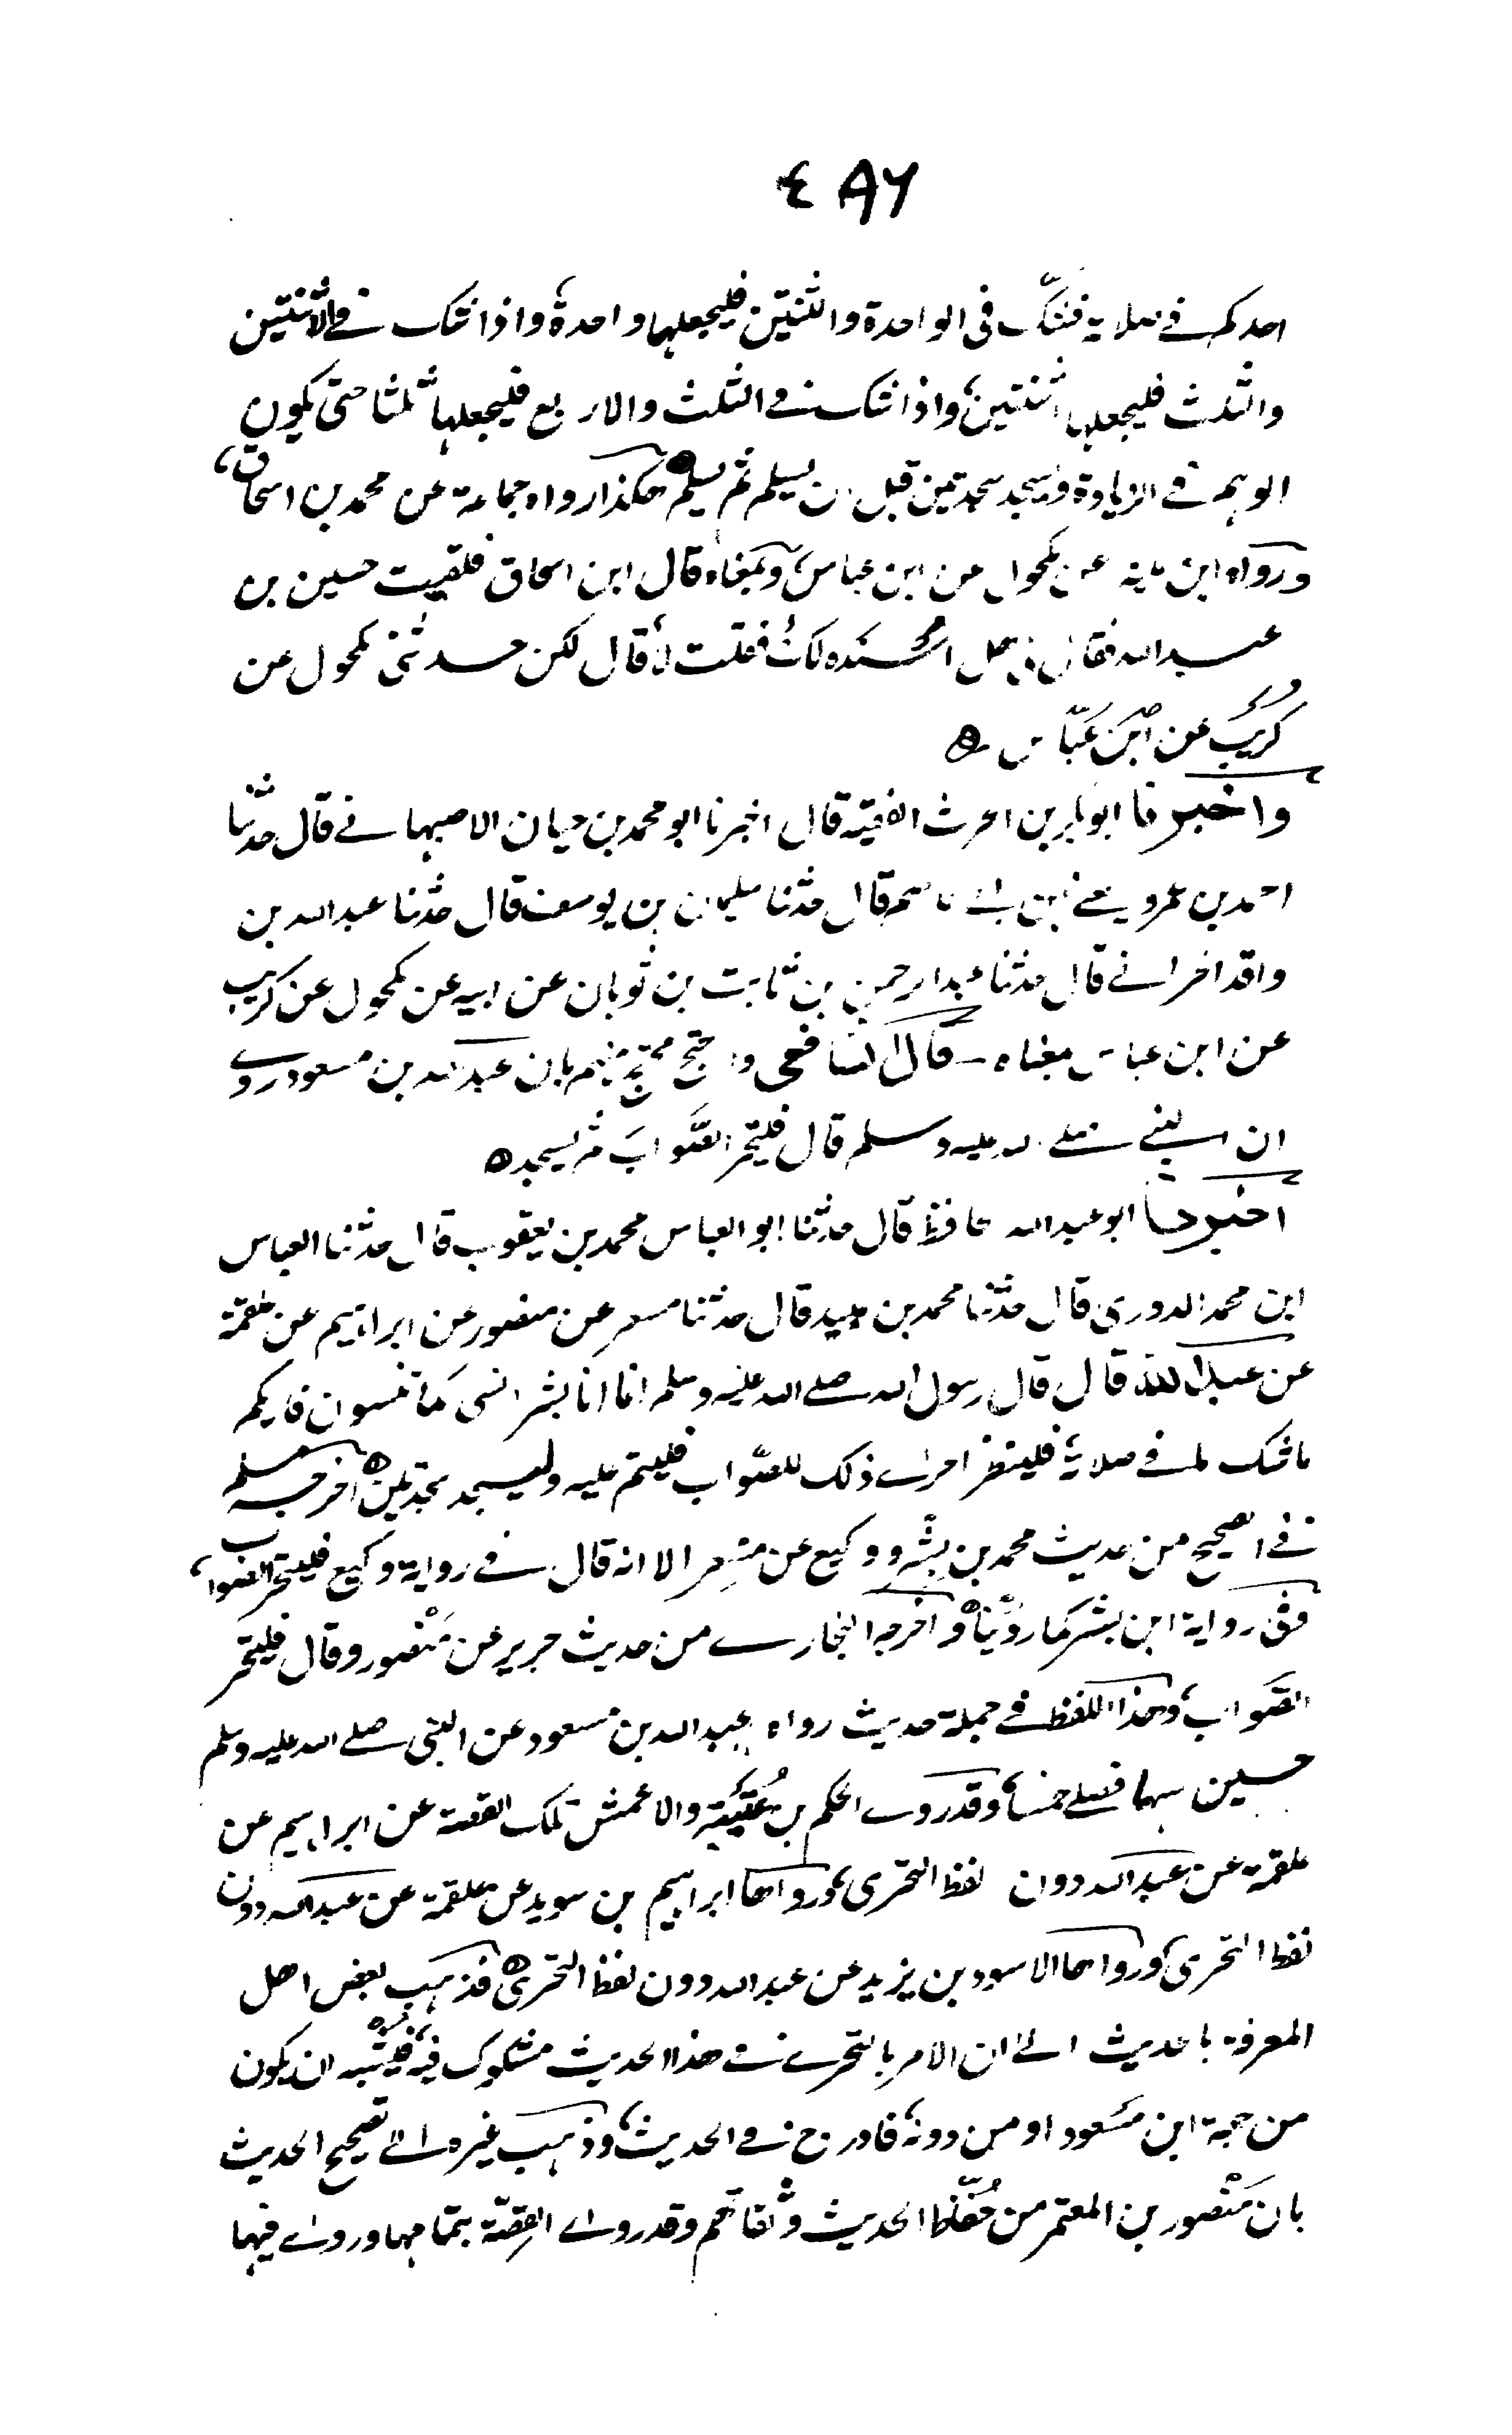 ٤٨٦
احدكم في صلاته فشكّ فى الواحدة والثنتين فليجعلها واحدة، واذا شك في الاثنتين
والثلث فليجعلها ثنتين، واذا شك في الثلث والاربع فليجعلها ثلثا حتى يكون
الوهم في الزيادة ويسجد سجدتين قبل ان يسلم ثم يسلم هكذا رواه جماعة عن محمد بن اسحاق،
ورواه ابن علية عن مكحول عن ابن عباس، وبمعناه قال ابن اسحاق فلقيت حسين بن
عبد الله فقال لي هل اسنده لك، فقلت لا، قال لكن حدثنى مكحول عن
كريب عن ابن عبّاس ه
واخبرنا ابو بكر بن الحرث الفقيه قال اخبرنا ابو محمد بن حيان الاصبهاني قال حدثنا
احمد بن عمرو يعني ابن ابي عاصم قال حدثنا سليمان بن يوسف قال حدثنا عبد الله بن
واقد الحراني قال حدثنا عبد الرحمن بن ثابت بن ثوبان عن ابيه عن مكحول عن كريب
عن ابن عباس بمعناه قال الشافعى واحتج محتج منهم بان عبد الله بن مسعود روى
ان النبي صلى الله عليه وسلم قال فليتحر الصواب ثم يسجد ه
اخبرنا ابو عبد الله الحافظ قال حدثنا ابو العباس محمد بن يعقوب قال حدثنا العباس
ابن محمد الدورى قال حدثنا محمد بن عبيد قال حدثنا مسعر عن منصور عن ابراهيم عن علقمة
عن عبد الله قال قال رسول الله صلى الله عليه وسلم انما انا بشر انسى كما تنسون فايكم
ما شك في صلاته، فلينظر احرى ذلك للصواب فليتم عليه وليسجد سجدتين ه اخرجه مسلم
في الصحيح من حديث محمد بن بشر ووكيع عن مسعر الا انه قال في رواية وكيع فليتحر الصواب،
وفى رواية ابن بشر كما روينا ه واخرجه البخارى من حديث جرير عن منصور وقال فليتحر
الصواب، وهذا اللفظ في جملة حديث رواه عبد الله بن مسعود عن النبى صلى الله عليه وسلم
حسين سها فصلى خمسا، وقد روى الحكم بن عُتيبة والاعمش تلك القصة عن ابراهيم عن
علقمة عن عبد الله دون لفظ التحرى، ورواها ابراهيم بن سويد عن علقمة عن عبد الله دون
لفظ التحرى، ورواها الاسود بن يزيد عن عبد الله دون لفظ التحرى ه فذهب بعض اهل
المعرفة بالحديث الى ان الامر بالتحرى في هذا الحديث مشكوك فيه، فيشبه ان يكون
من جهة ابن مسعود او من دونه، فادرج في الحديث، وذهب غيره الى تصحيح الحديث
بان منصور بن المعتمر من حفّاظ الحديث وثقاتهم وقد روى القِصّة بتمامها وروى فيها